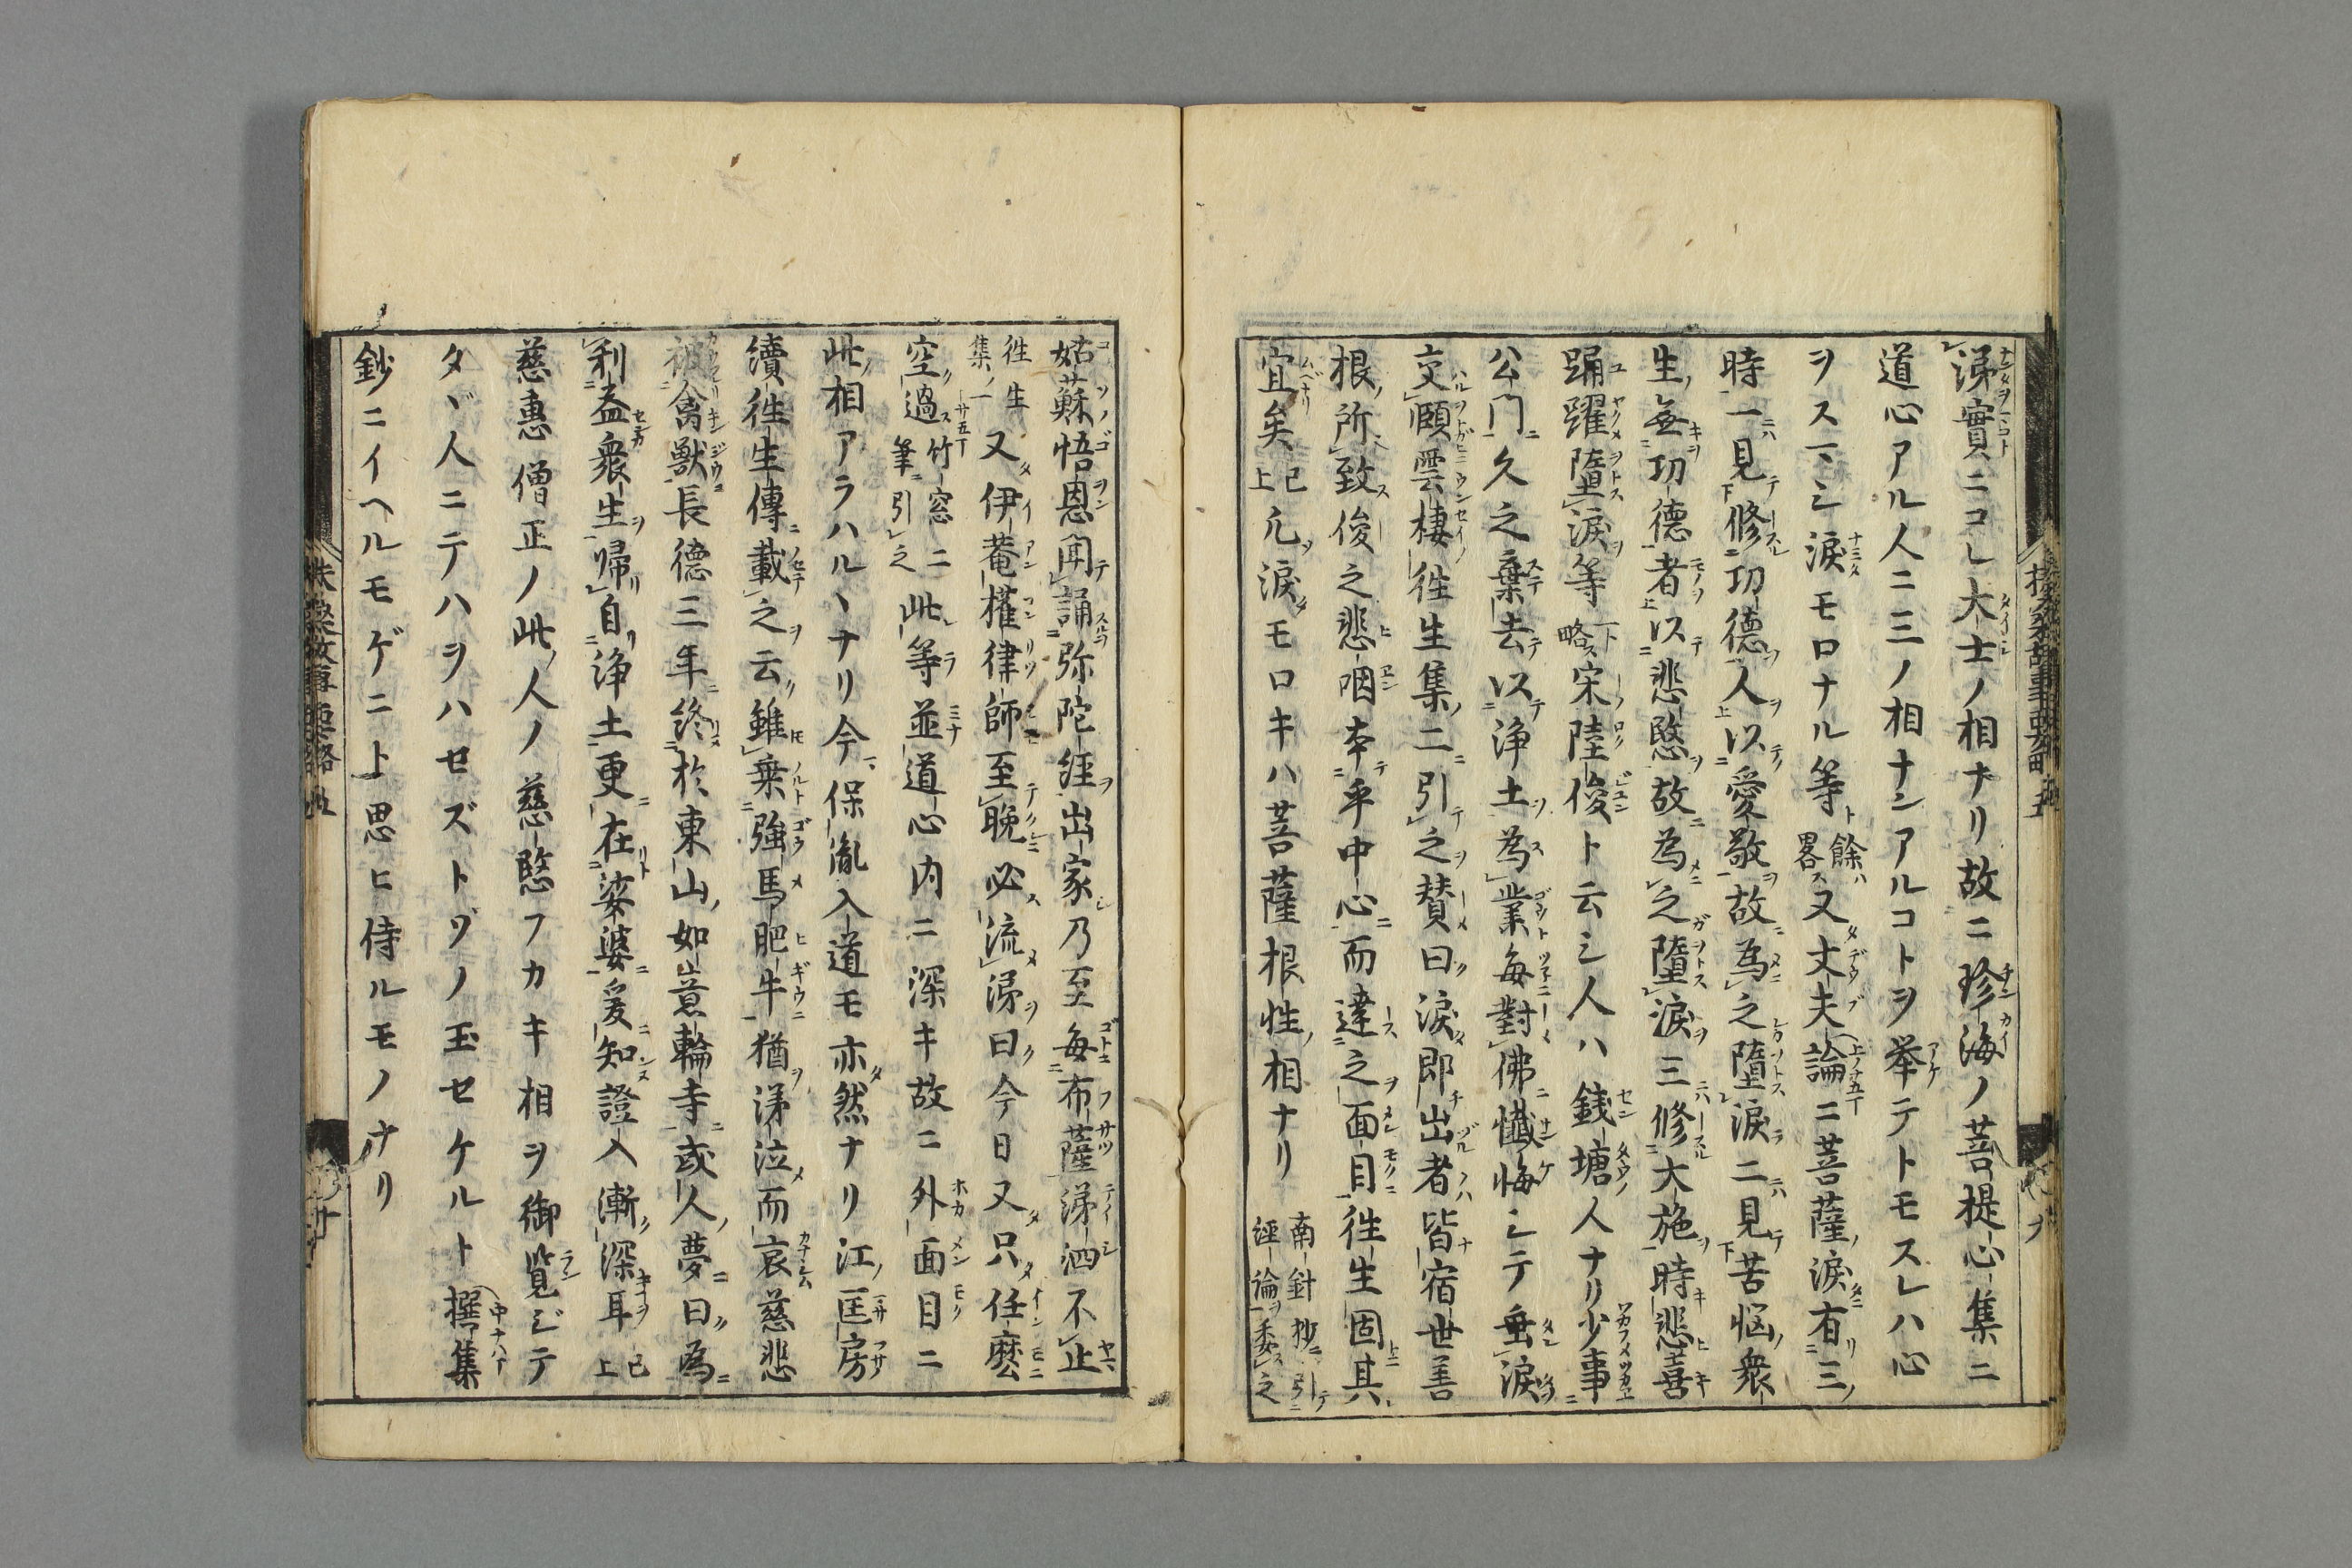 涕實ニコレ大士ノ相ナリ故ニ珍海ノ菩提心集ニ
道心アル人ニ三ノ相ナンアルコトヲ挙テトモスレハ心
ヲスマシ涙モロナル等ト餘ハ畧ス又丈夫論ニ菩薩ノ涙有三ノ
時一見修功德人以愛敬故為之墮涙二見苦惱衆
生無功德者以悲愍故為之墮涙三修大施時悲喜
踊躍墮涙等略ス宋陸俊ト云シ人ハ錢塘人ナリ少事
公門久之棄去以淨土為業每對佛懺悔シテ垂涙
交頤雲棲往生集二引之賛曰涙即出者皆宿世善
根所致俊之悲咽本乎中心而達之面目往生固其
宜矣已上凡涙モロキハ菩薩根性ノ相ナリ南針抄引經論委之
姑蘇悟恩聞誦弥陀經出家乃至每布薩涕泗不止
往生集一又伊菴權律師至晩必流涕曰今日又只任麽
空過竹窓二筆引之此等並道心内ニ深キ故ニ外面目ニ
此相アラハルヽナリ今保胤入道モ亦然ナリ江匡房
續往生傳載之云雖乗強馬肥牛猶涕泣而哀慈悲
被禽獸長德三年終於東山如意輪寺或人夢曰為
利益衆生帰自淨土更在娑婆爰知證入漸深耳已上
慈惠僧正ノ此人ノ慈愍フカキ相ヲ御覧ジテ
タヾ人ニテハヲハセズトヅノ玉セケルト撰集
鈔ニイヘルモゲニト思ヒ侍ルモノナリ